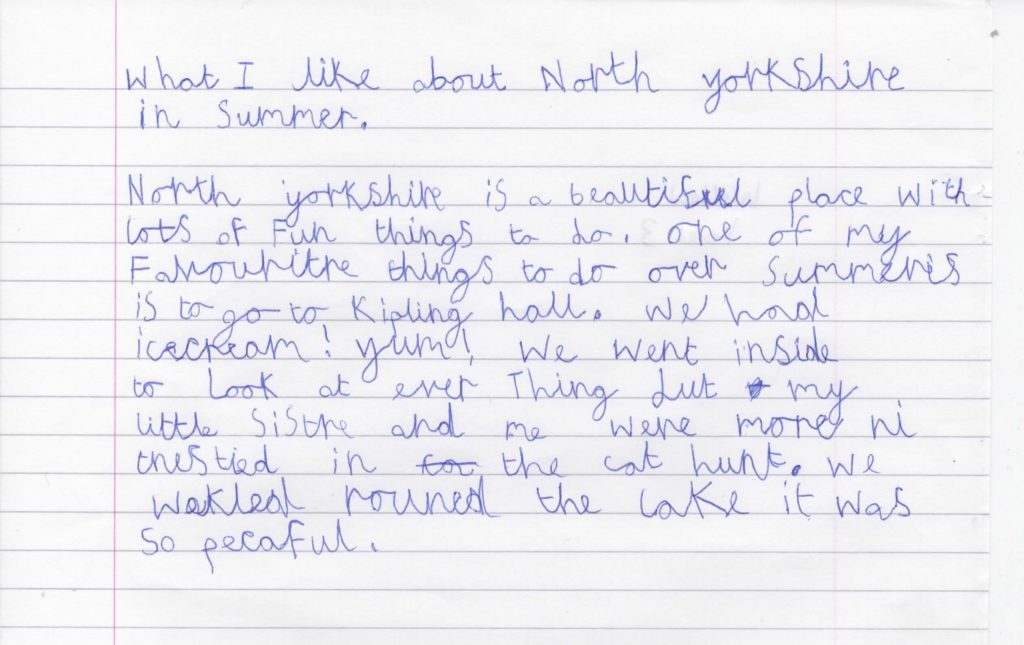 What I like about North yorkshire
in Summer.
North yorkshire is a beautiful place with
lots of Fun things to do. one of my
Favouritre things to do over Summeris
is to go to Kipling hall. We had
icecream! yum! We went inside
to look at ever Thing but my
little Sistre and me were more ni
trestied in the cat hunt. We
wakled rouned the lake it was
so pecaful.